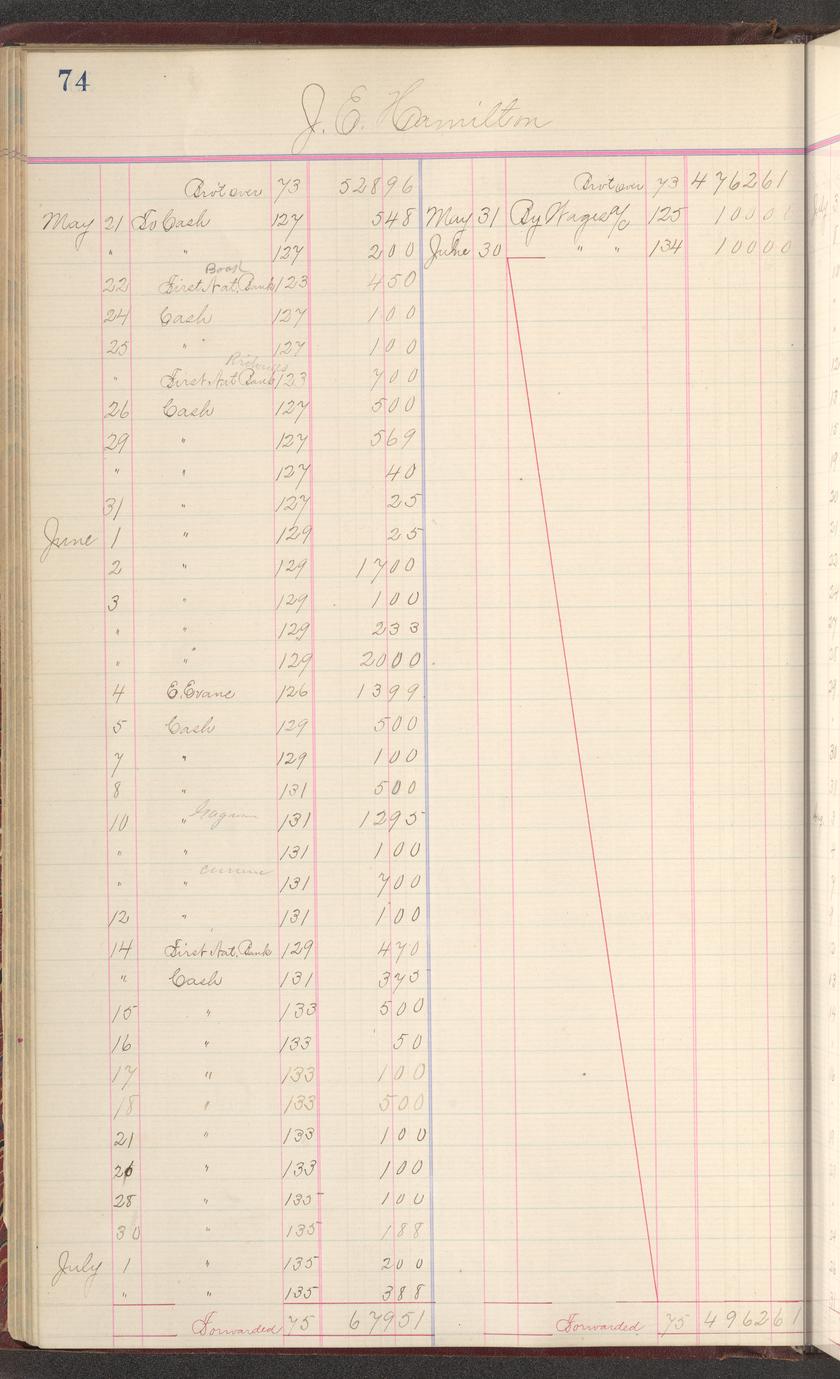 74
J. E. Hamilton
Brot over 73 52896 Brot over 73 476261
May 21 To Cash 127 548 May 31 By Wages a/c 125 10000
" " 127 200 June 30 " " 134 10000
22 First Nat. Bank 123 450
24 Cash 127 100
25 " 127 100
" First Nat Bank 123 700
26 Cash 127 500
29 " 127 569
" " 127 40
31 " 127 25
June 1 " 129 25
2 " 129 1700
3 " 129 100
" " 129 233
" " 129 2000
4 E. Evans 126 1399
5 Cash 129 500
7 " 129 100
8 " 131 500
10 " 131 1295
" " 131 100
" " 131 700
12 " 131 100
14 First Nat. Bank 129 470
" Cash 131 375
15 " 133 500
16 " 133 50
17 " 133 100
18 " 133 500
21 " 133 100
26 " 133 100
28 " 135 100
30 " 135 188
July 1 " 135 200
" " 135 388
Forwarded 75 67951 Forwarded 75 496261